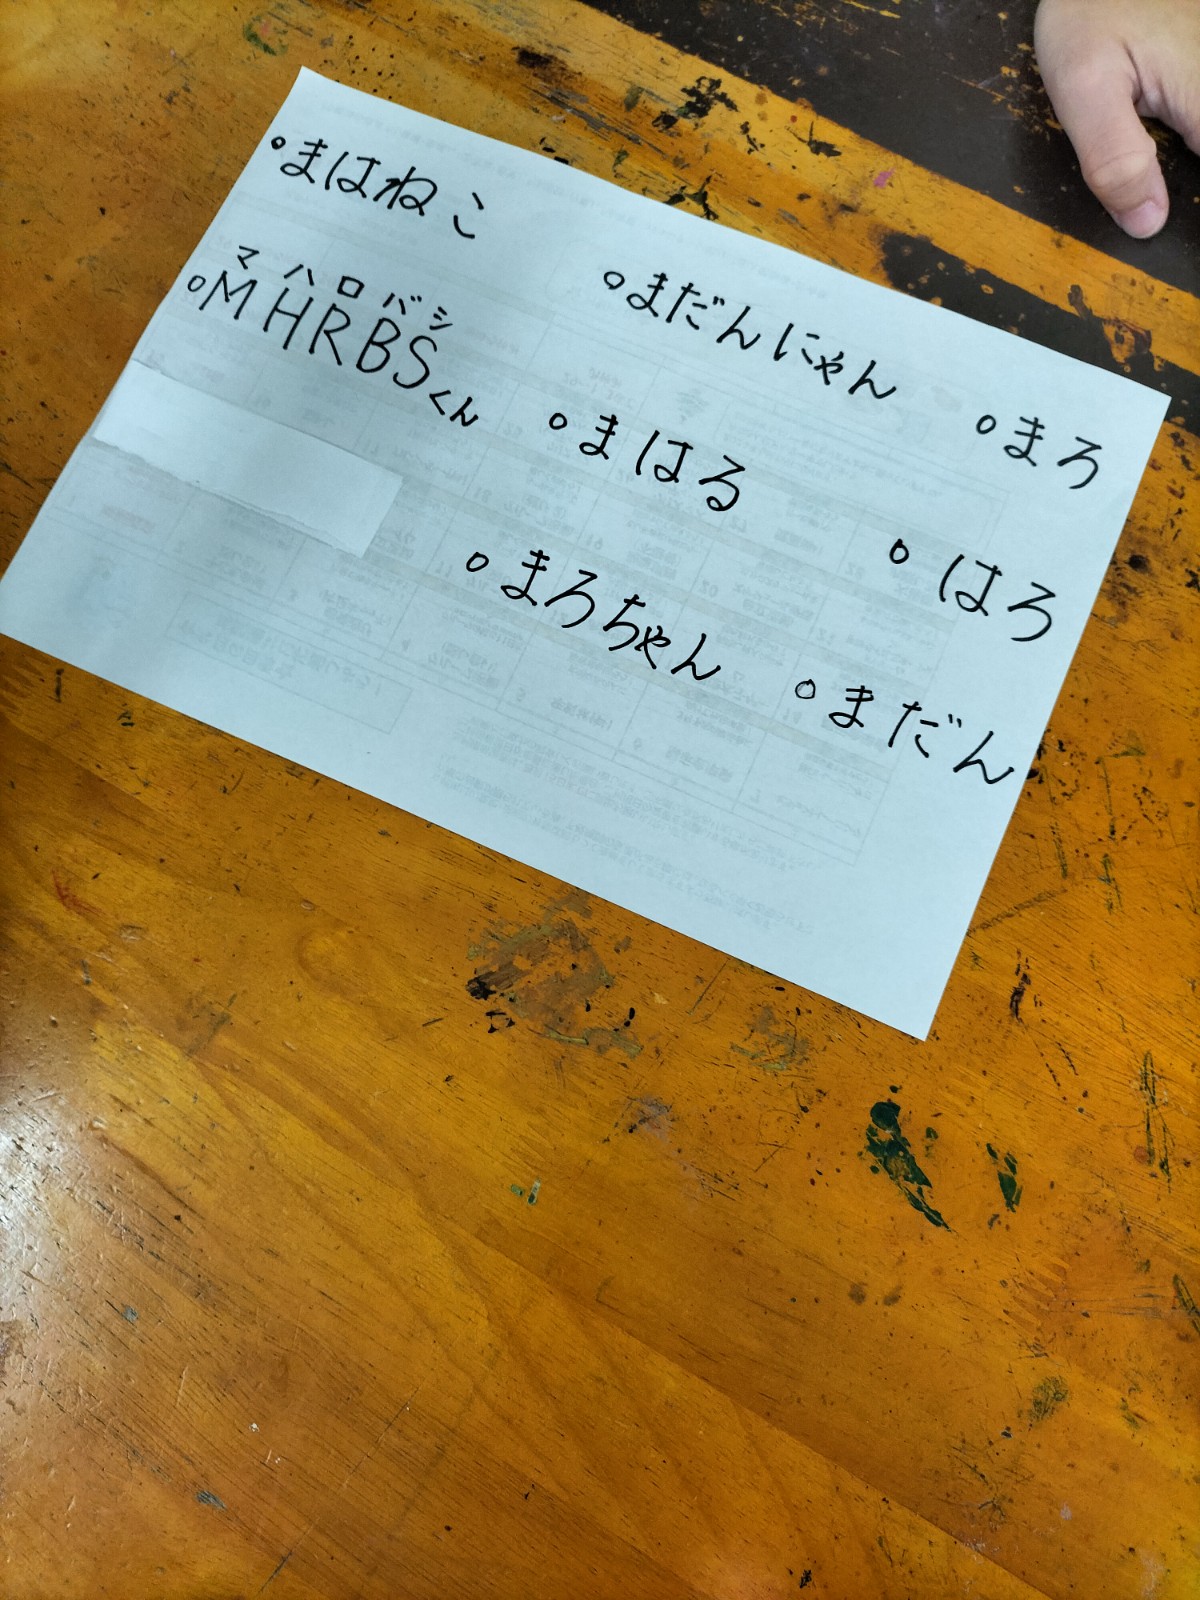 ○まはねこ
マハロバシ
○MHRBSくん
○まだんにゃん
○まはる
○まろちゃん
○まろ
○はろ
○まだん